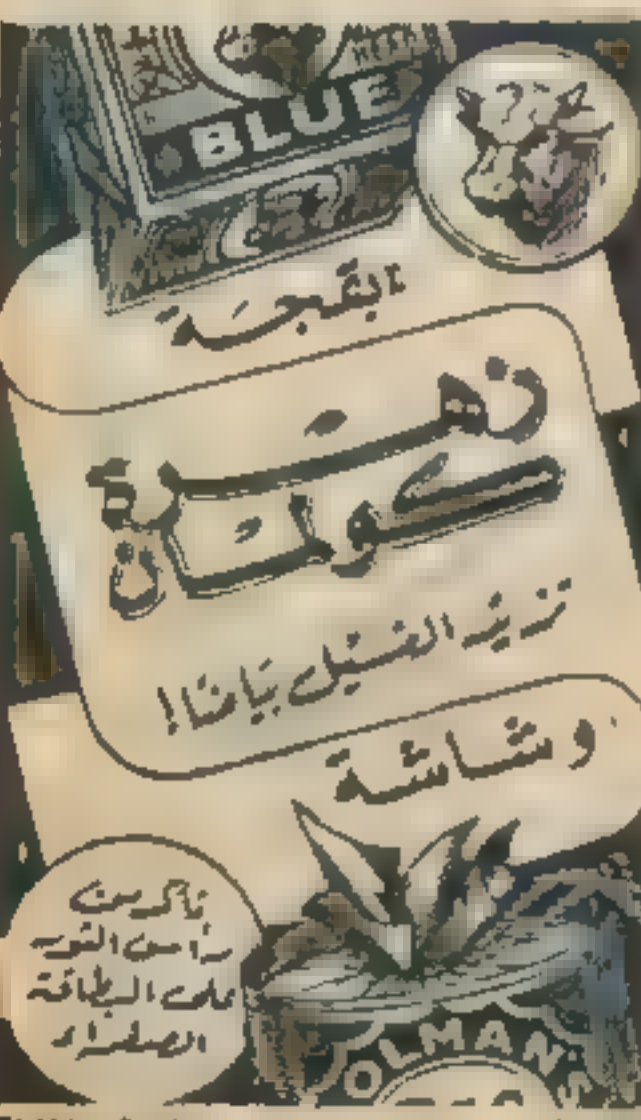 BLUE
بقجة
زهرة
كولمان
تزيد الغسيل بياضا!
وشاشة
تأكد من
رأس الثور
على البطاقة
الصفراء
OLMANS